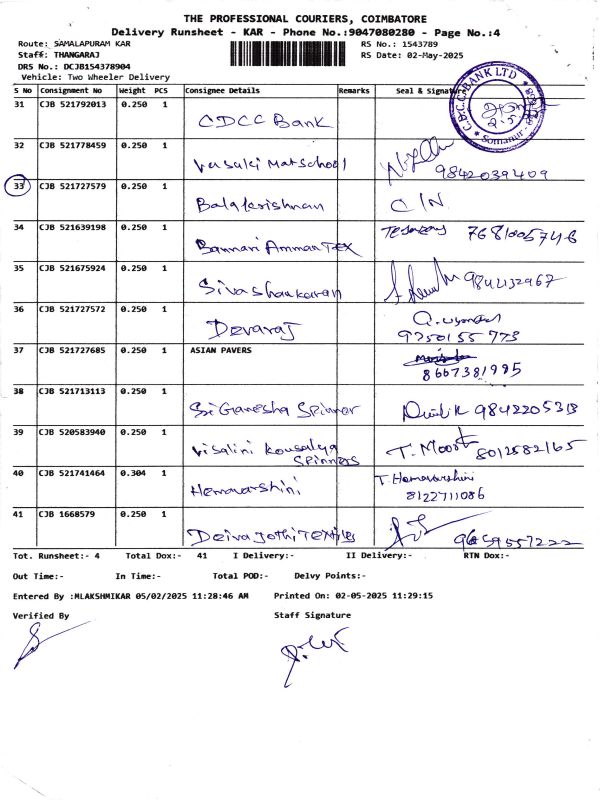 THE PROFESSIONAL COURIERS, COIMBATORE
Delivery Runsheet - KAR - Phone No.:9047080280 - Page No.:4
Route: SAMALAPURAM KAR
RS No.: 1543789
Staff: THANGARAJ
RS Date: 02-May-2025
DRS No.: DCJB154378904
Vehicle: Two Wheeler Delivery
S No Consignment No Weight PCS Consignee Details Remarks Seal & Signature
C.D.C.C.BANK LTD
Somanur
31 CJB 521792013 0.250 1 CDCC Bank
32 CJB 521778459 0.250 1 Vasuki Mat School 9842039409
33 CJB 521727579 0.250 1 Balakrishnan C/N
34 CJB 521639198 0.250 1 Bannari Amman Tex
35 CJB 521675924 0.250 1 Sivashankaran 9842132967
36 CJB 521727572 0.250 1 Devaraj
37 CJB 521727685 0.250 1 ASIAN PAVERS
8667381995
38 CJB 521713113 0.250 1 Sri Ganesha Spinner
39 CJB 520583940 0.250 1 Visalini Kousalya
Spinners
T. Moorthi 8012582165
40 CJB 521741464 0.304 1 Hemavarshini T. Hemavarshini
8122711086
41 CJB 1668579 0.250 1 Deiva Jothi Textiles
Tot. Runsheet:- 4 Total Dox:- 41 I Delivery:- II Delivery:- RTN Dox:-
Out Time:- In Time:- Total POD:- Delvy Points:-
Entered By :MLAKSHMIKAR 05/02/2025 11:28:46 AM Printed On: 02-05-2025 11:29:15
Verified By Staff Signature